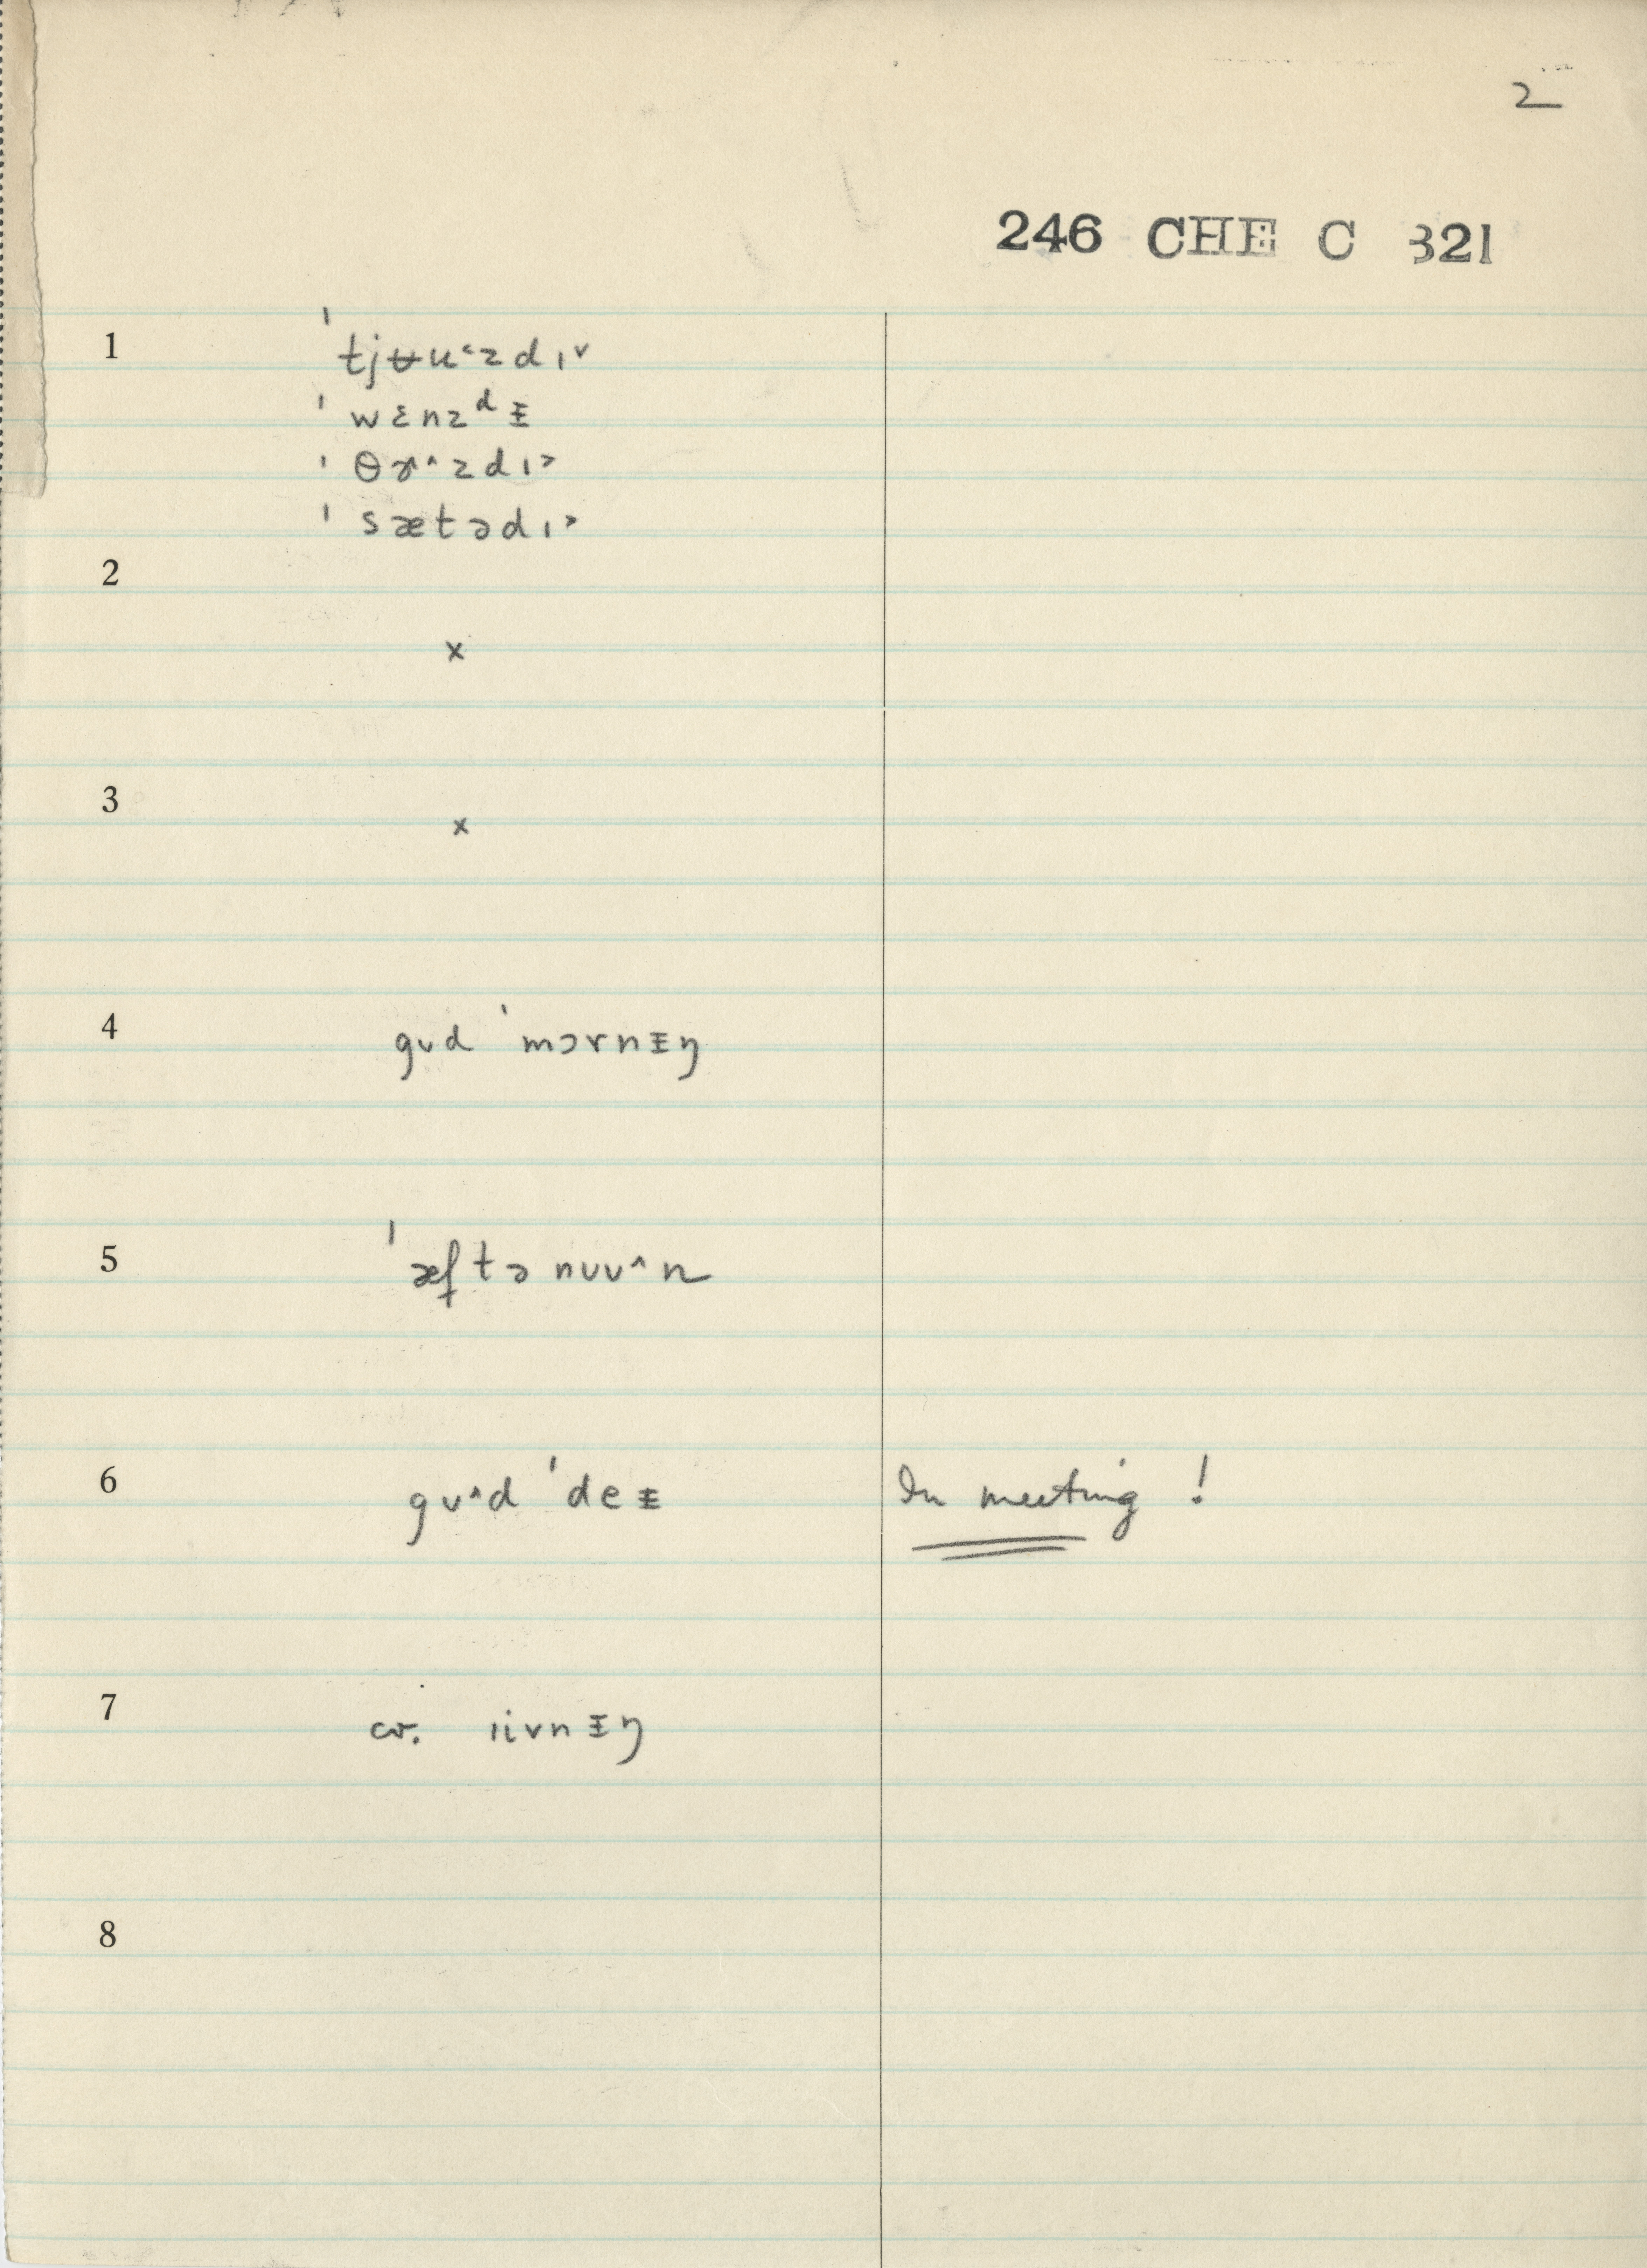 2
246 CHE C 321
1 ˈtjʉu˂zdɪ˅
ˈwɛnzᵈᵻ
ˈθɝ˄zdɪ˃
ˈsætədɪ˃
2
x
3
x
4 gʊd ˈmɔrnᵻŋ
5 ˈæftənʊu˄n
6 gʊ˄d ˈdeᵻ In meeting !
7 cv. ɪivnᵻŋ
8